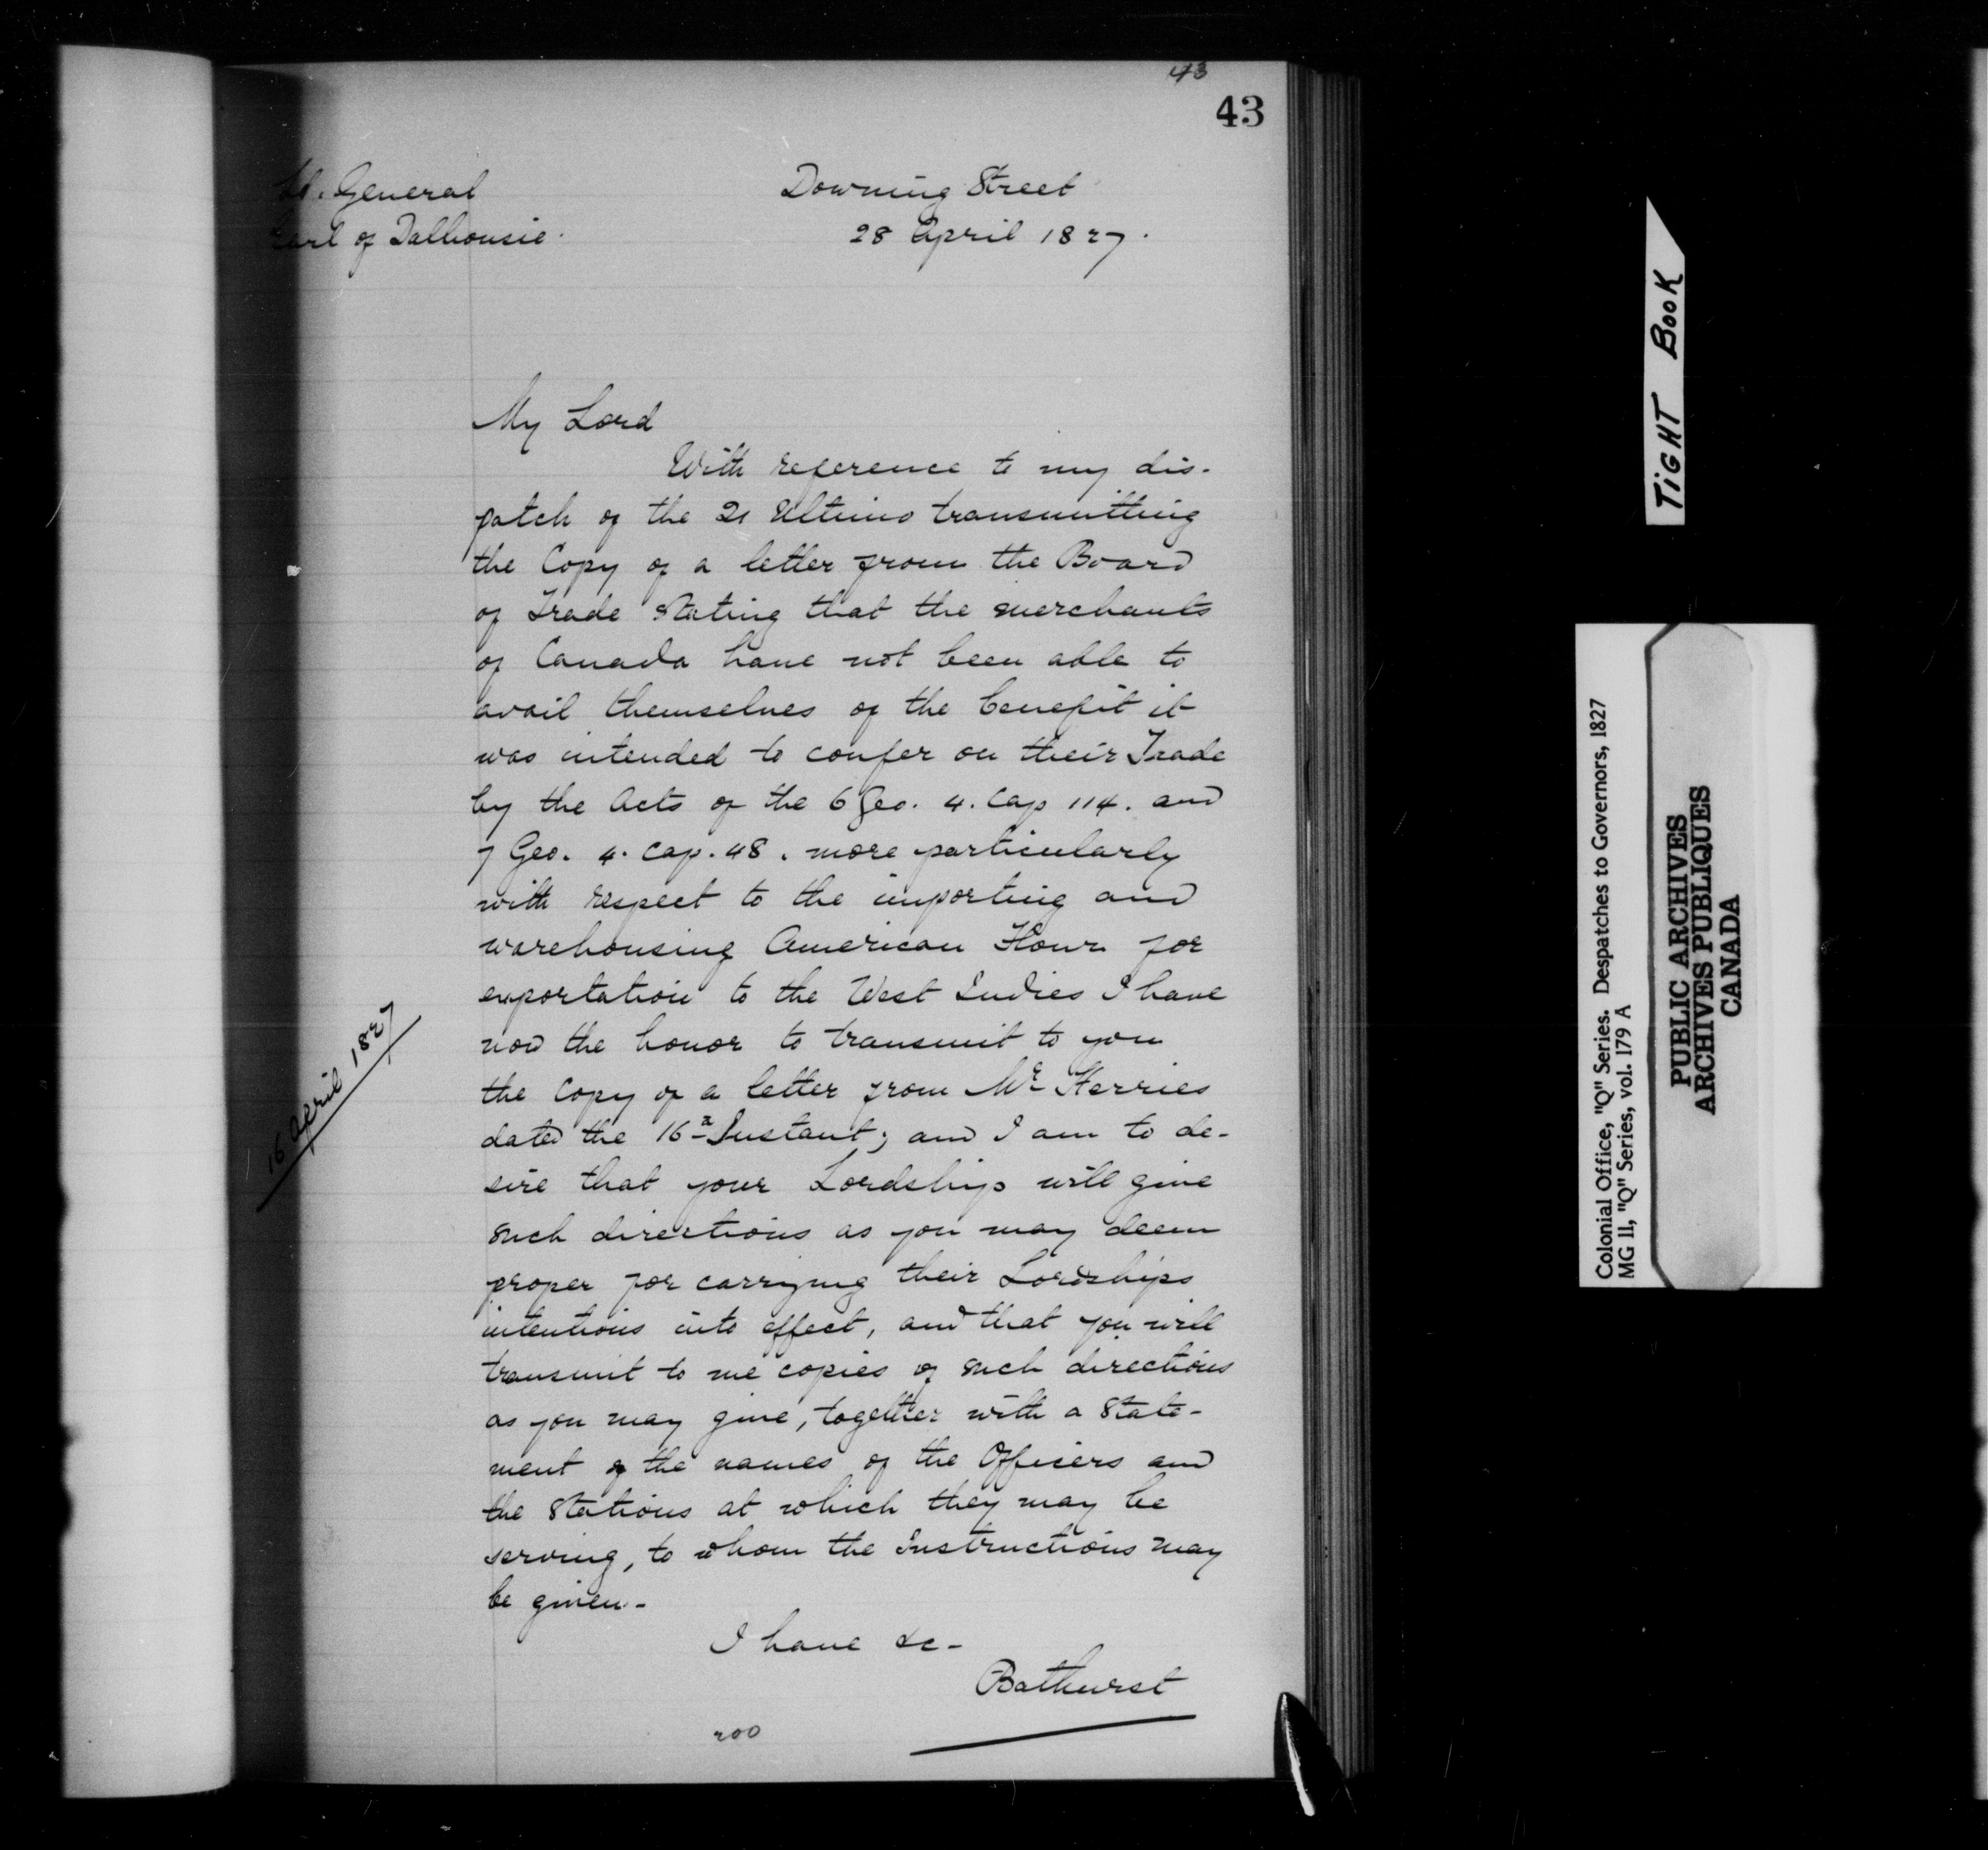 43
43
Lt. General
Earl of Dalhousie.
Downing Street
28 April 1827.
My Lord
With reference to my dis-
patch of the 21 Ultimo transmitting
the Copy of a letter from the Board
of Trade stating that the merchants
of Canada have not been able to
avail themselves of the benefit it
was intended to confer on their Trade
by the Acts of the 6 Geo. 4. Cap 114. and
7 Geo. 4. Cap. 48. more particularly
with respect to the importing and
warehousing American Flour for
exportation to the West Indies I have
now the honor to transmit to you
the Copy of a letter from Mr Herries
dated the 16 Instant; and I am to de-
sire that your Lordship will give
such directions as you may deem
proper for carrying their Lordships
intentions into effect, and that you will
transmit to me copies of such directions
as you may give, together with a State-
ment of the names of the Officers and
the Stations at which they may be
serving, to whom the Instructions may
be given-
I have &c-
Bathurst
200
16 April 1827
TIGHT BOOK
Colonial Office, "Q" Series. Despatches to Governors, 1827
MG 11, "Q" Series, vol. 179 A
PUBLIC ARCHIVES
ARCHIVES PUBLIQUES
CANADA